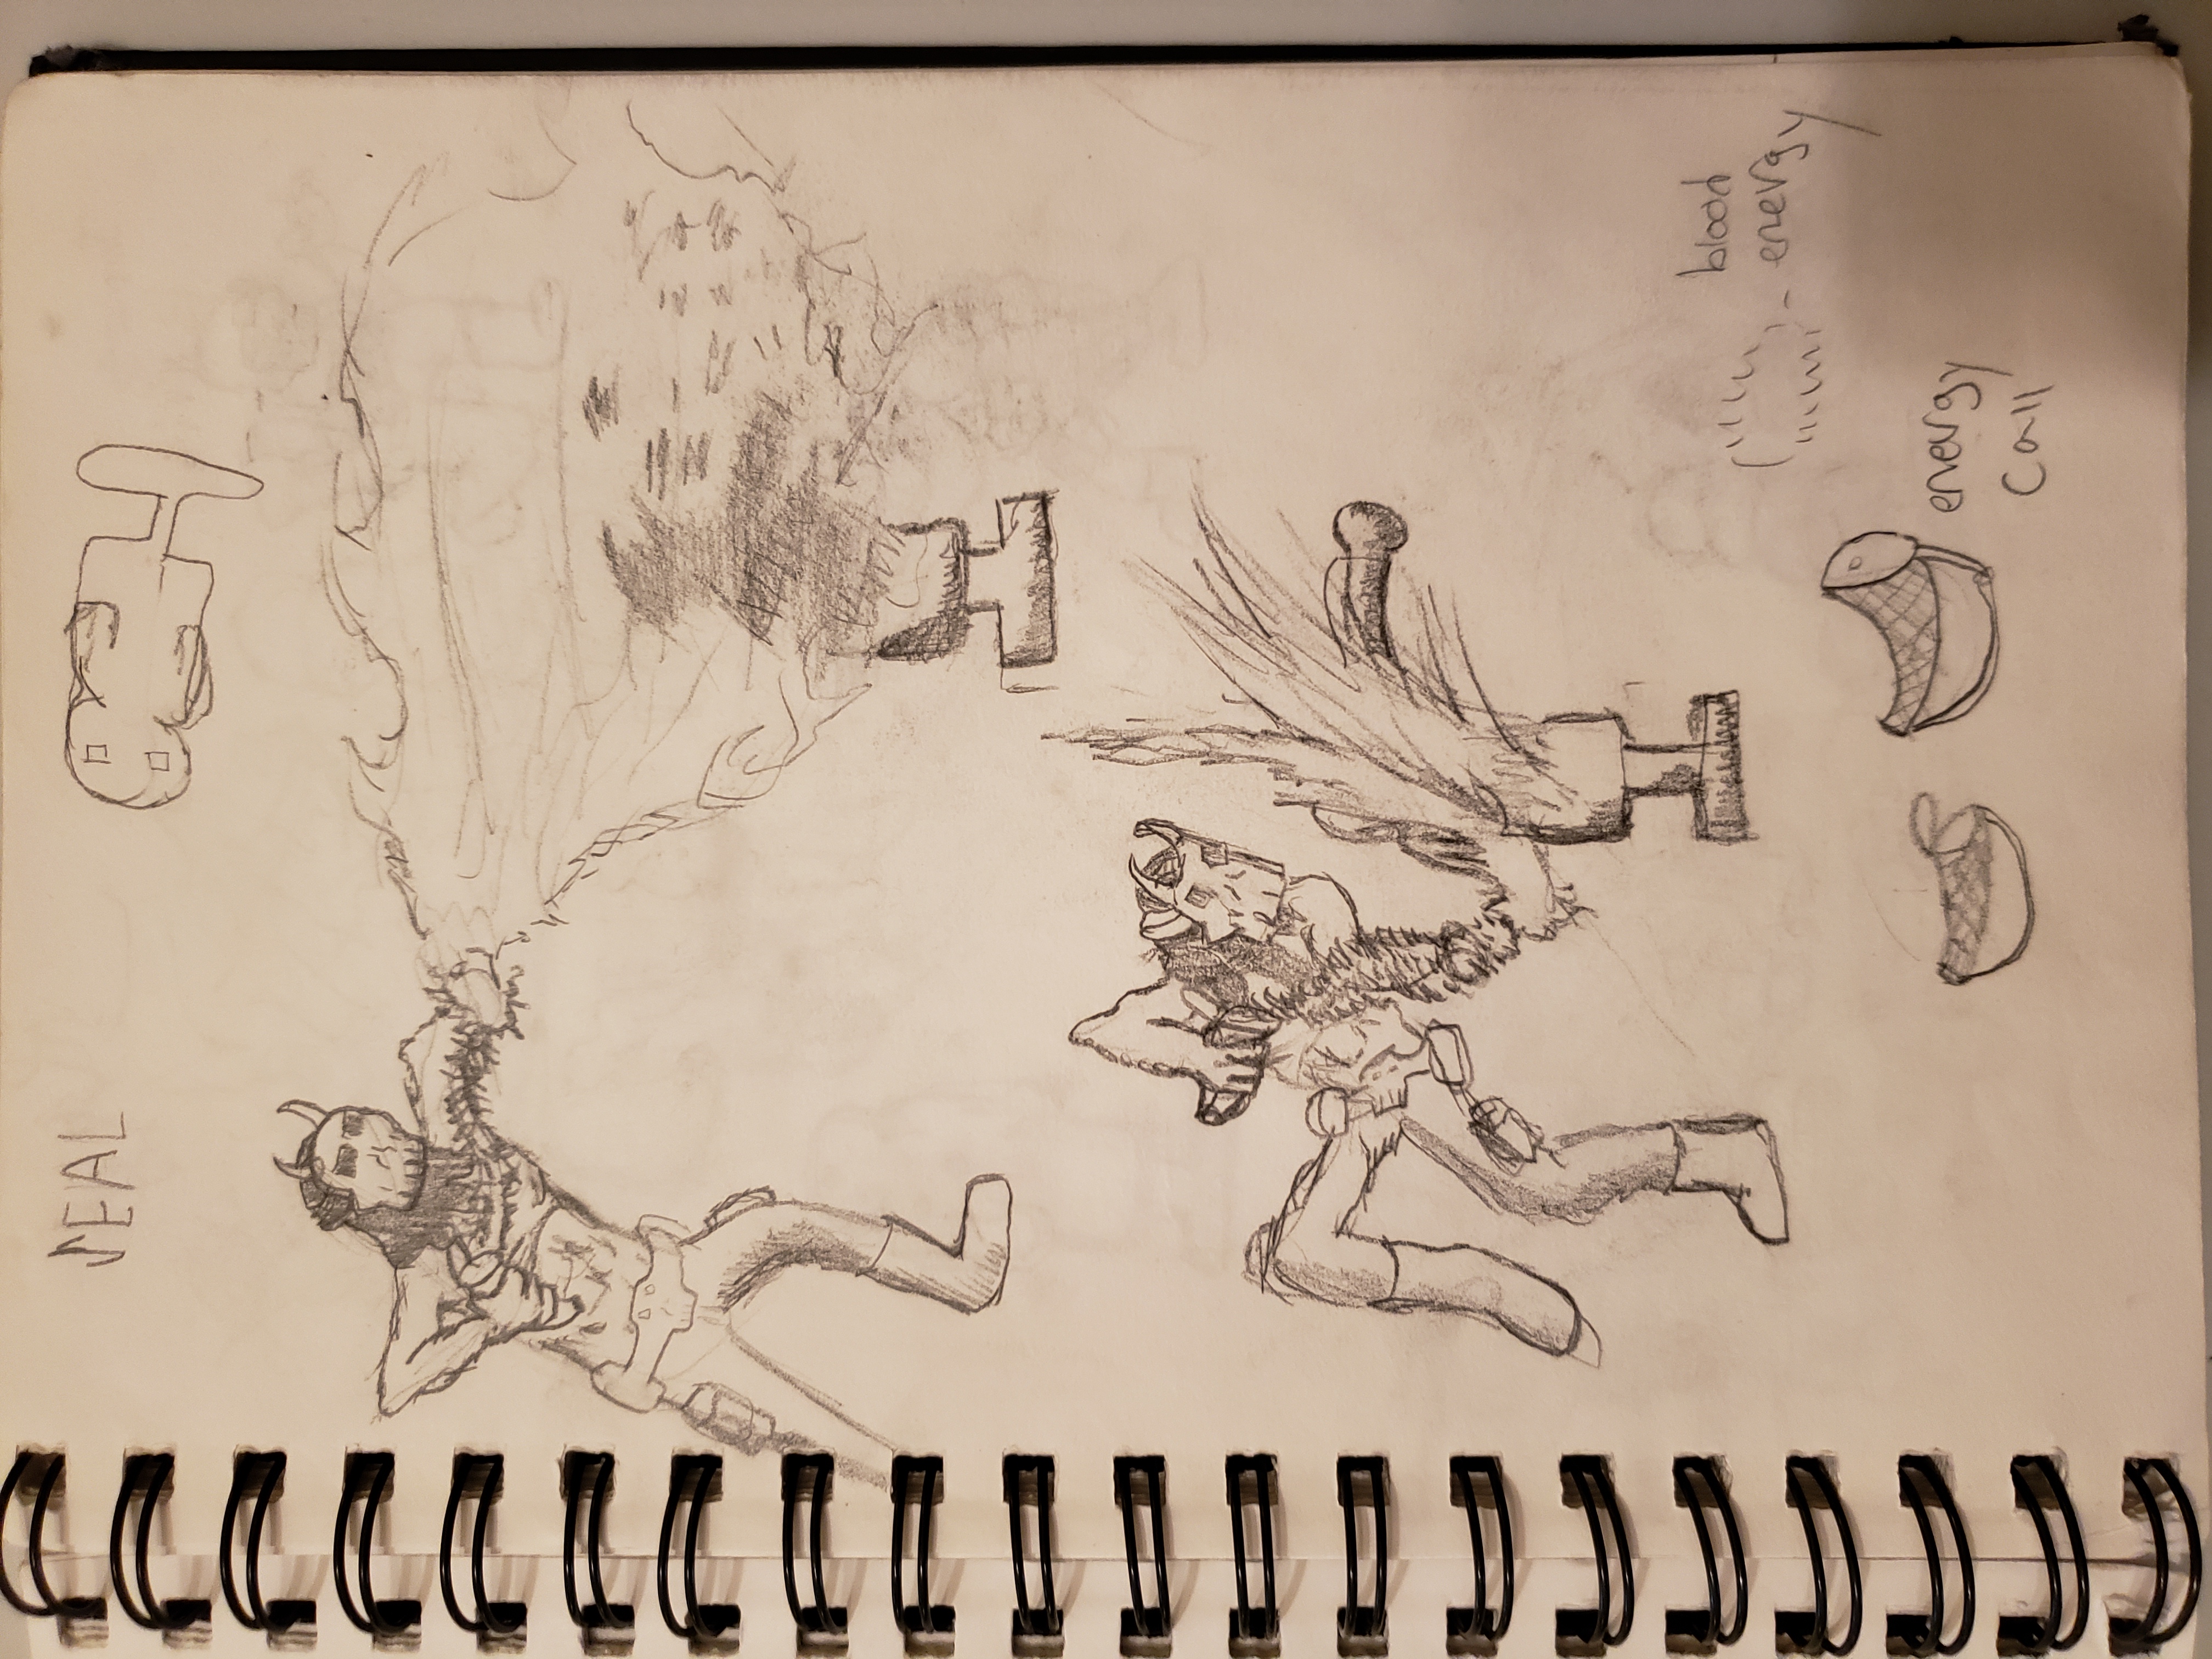 SEAL
blood
energy
energy
Call